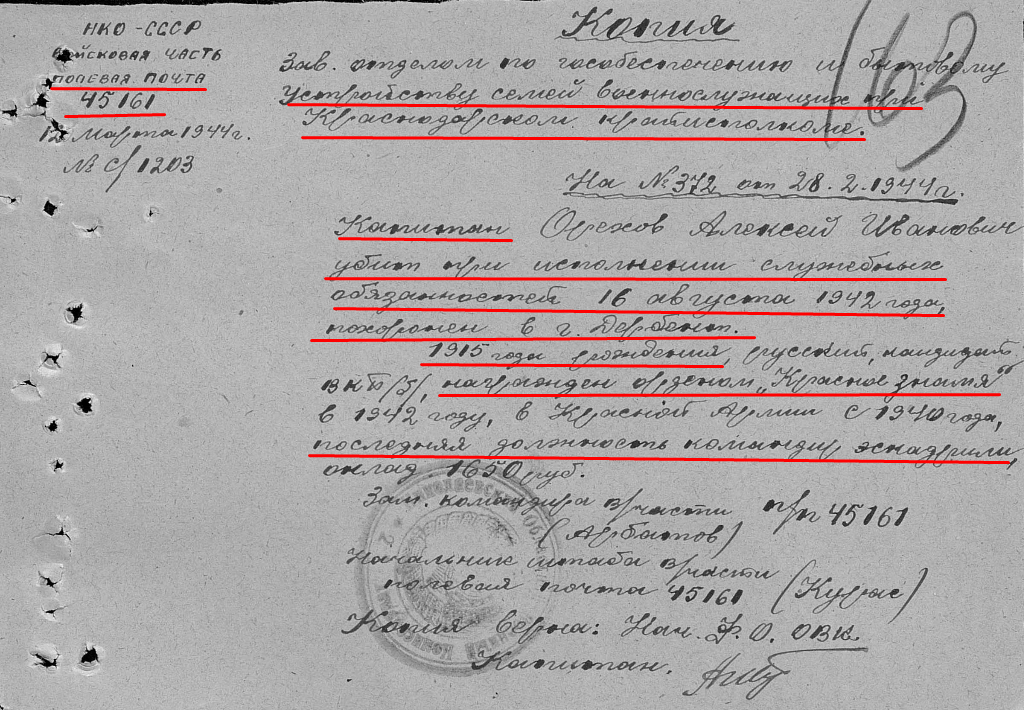 Копия
НКО - СССР
Войсковая часть
полевая почта
45161
12 марта 1944г.
№ с/1203
163
Зав. отделом по гособеспечению и бытовому
устройству семей военнослужащих при
Краснодарском крайисполкоме.
На № 372 от 28.2.1944г.
Капитан Орехов Алексей Иванович
убит при исполнении служебных
обязанностей 16 августа 1942 года,
похоронен в г. Дербент.
1915 года рождения, русский, кандидат
ВКП/б/, награжден орденом „Красное знамя"
в 1942 году, в Красной Армии с 1940 года,
последняя должность командир эскадрили,
оклад 1650 руб.
Зам. командира в/части п/п 45161
(Арбатов)
Начальник штаба в/части
полевая почта 45161 (Курас)
Копия верна: Нач. Ф.О. ОВК
Капитан.